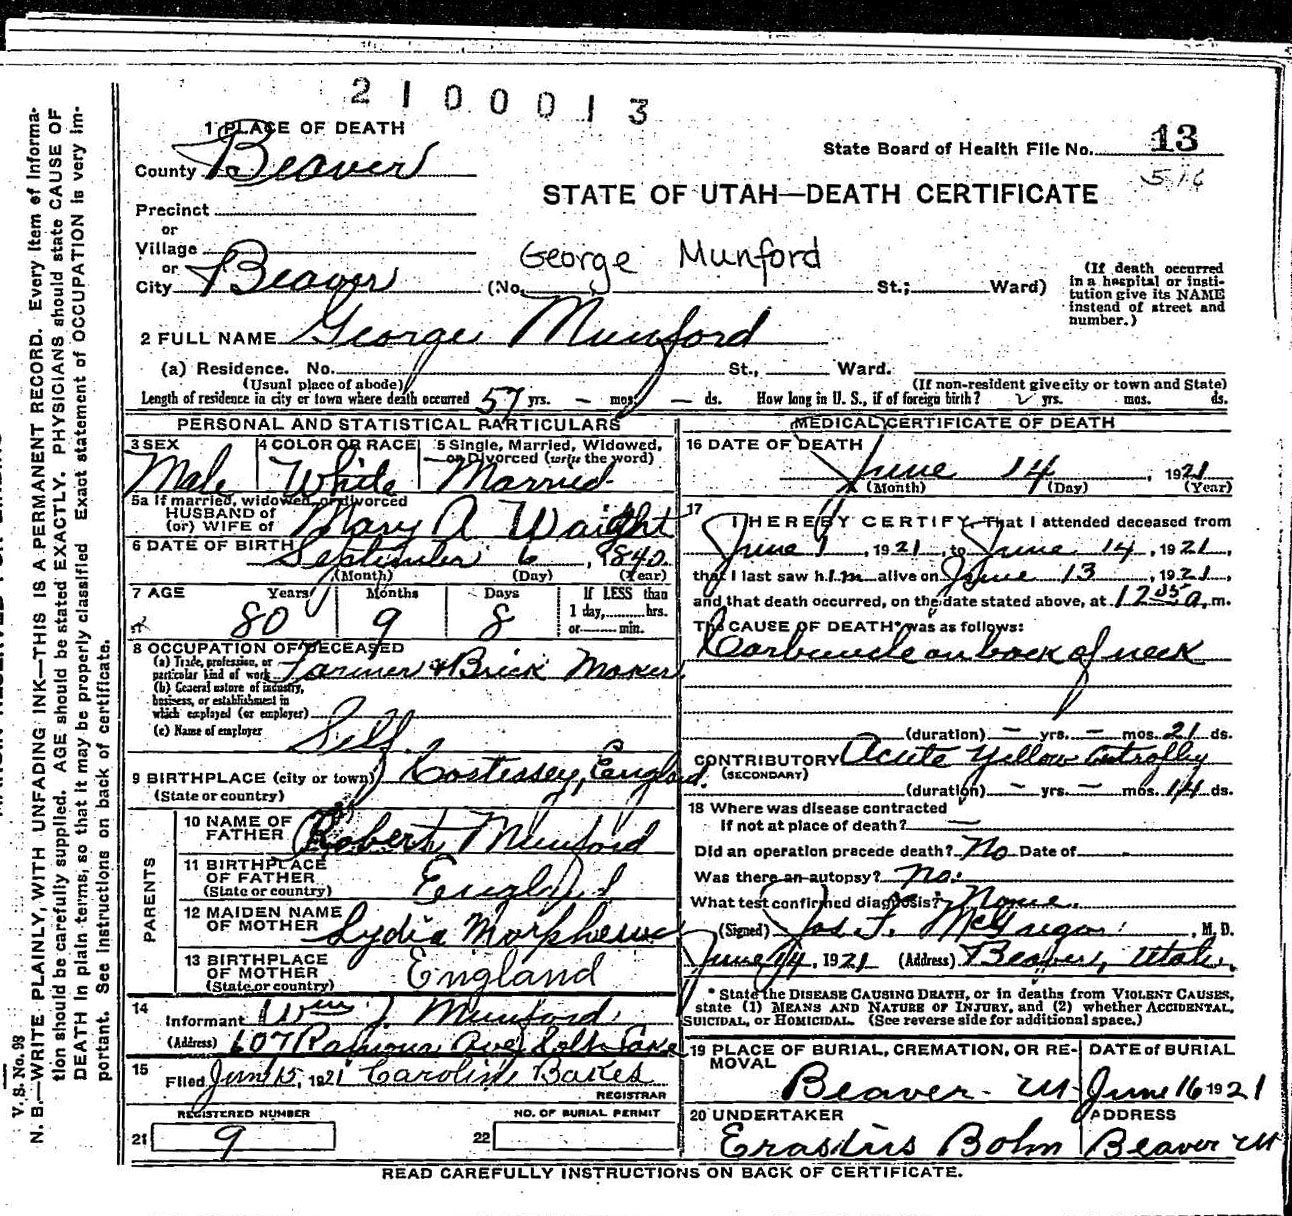 2100013
1 PLACE OF DEATH
County Beaver
State Board of Health File No. 13
516
STATE OF UTAH—DEATH CERTIFICATE
Precinct
or
Village
or
City Beaver
George Munford
(No. St.; Ward)
(If death occurred in a hospital or insti-
tution give its NAME
instead of street and
number.)
2 FULL NAME George Munford
(a) Residence. No. St., Ward.
(Usual place of abode)
(If non-resident give city or town and State)
Length of residence in city or town where death occurred 57 yrs. — mos. — ds. How long in U. S., if of foreign birth? yrs. mos. ds.
PERSONAL AND STATISTICAL PARTICULARS
3 SEX
Male
4 COLOR OR RACE
White
5 Single, Married, Widowed,
or Divorced (write the word)
Married
5a If married, widowed, or divorced
HUSBAND of
(or) WIFE of Mary A Waight
6 DATE OF BIRTH September 6, 1840
(Month) (Day) (Year)
7 AGE Years Months Days
80 9 8
If LESS than
1 day, hrs.
or min.
8 OCCUPATION OF DECEASED
(a) Trade, profession, or
particular kind of work Farmer & Brick Maker
(b) General nature of industry,
business, or establishment in
which employed (or employer)
(c) Name of employer Self.
9 BIRTHPLACE (city or town) Costessey, England.
(State or country)
PARENTS
10 NAME OF
FATHER Robert Munford
11 BIRTHPLACE
OF FATHER England
(State or country)
12 MAIDEN NAME
OF MOTHER Lydia Morphew
13 BIRTHPLACE
OF MOTHER England
(State or country)
14
Informant Wm J. Munford
(Address) 607 Ave, Salt Lake
15 Filed June 15, 1921 Caroline Bakes
REGISTRAR
REGISTERED NUMBER
21 9
NO. OF BURIAL PERMIT
22
MEDICAL CERTIFICATE OF DEATH
16 DATE OF DEATH
June 14, 1921
(Month) (Day) (Year)
17
I HEREBY CERTIFY, That I attended deceased from
June 1, 1921, to June 14, 1921,
that I last saw him alive on June 13, 1921,
and that death occurred, on the date stated above, at 12 05 a.m.
The CAUSE OF DEATH* was as follows:
Carbuncle on back of neck
(duration) — yrs. — mos. 21 ds.
CONTRIBUTORY Acute Yellow Atrophy
(SECONDARY)
(duration) — yrs. — mos. 14 ds.
18 Where was disease contracted
if not at place of death? —
Did an operation precede death? No Date of -
Was there an autopsy? No.
What test confirmed diagnosis? None.
(Signed) Jos F. McGregor, M. D.
June 14, 1921 (Address) Beaver, Utah.
* State the DISEASE CAUSING DEATH, or in deaths from VIOLENT CAUSES,
state (1) MEANS AND NATURE OF INJURY, and (2) whether ACCIDENTAL,
SUICIDAL, or HOMICIDAL. (See reverse side for additional space.)
19 PLACE OF BURIAL, CREMATION, OR RE-
MOVAL
Beaver - Ut
DATE OF BURIAL
June 16 1921
20 UNDERTAKER
Erastus Bohn
ADDRESS
Beaver Ut
READ CAREFULLY INSTRUCTIONS ON BACK OF CERTIFICATE.
V. S. No. 98
N. B.—WRITE PLAINLY, WITH UNFADING INK—THIS IS A PERMANENT RECORD. Every item of informa-
tion should be carefully supplied. AGE should be stated EXACTLY. PHYSICIANS should state CAUSE OF
DEATH in plain terms, so that it may be properly classified. Exact statement of OCCUPATION is very im-
portant. See instructions on back of certificate.